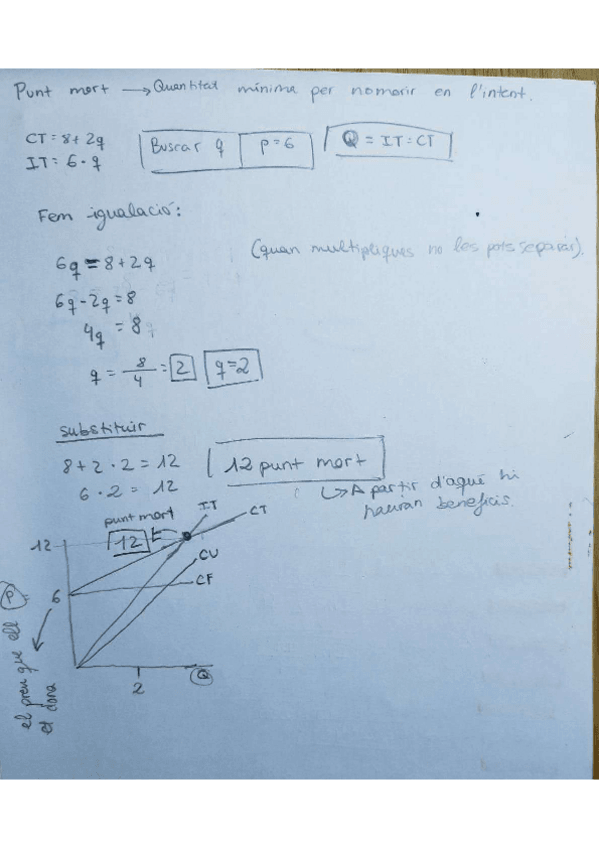 Punt mort → Quantitat mínima per no morir en l'intent.
CT = 8 + 2q
IT = 6 · q
Buscar q | p = 6
Q = IT = CT
Fem igualació:
(quan multipliques no les pots separar).
6q = 8 + 2q
6q - 2q = 8
4q = 8
q = 8/4 = 2 q = 2
substituir
8 + 2 · 2 = 12
6 · 2 = 12
12 punt mort
↳ A partir d'aquí hi
hauran beneficis.
punt mort
IT
CT
12
12
CU
CF
6
P
el preu que ell
et dona
2
Q